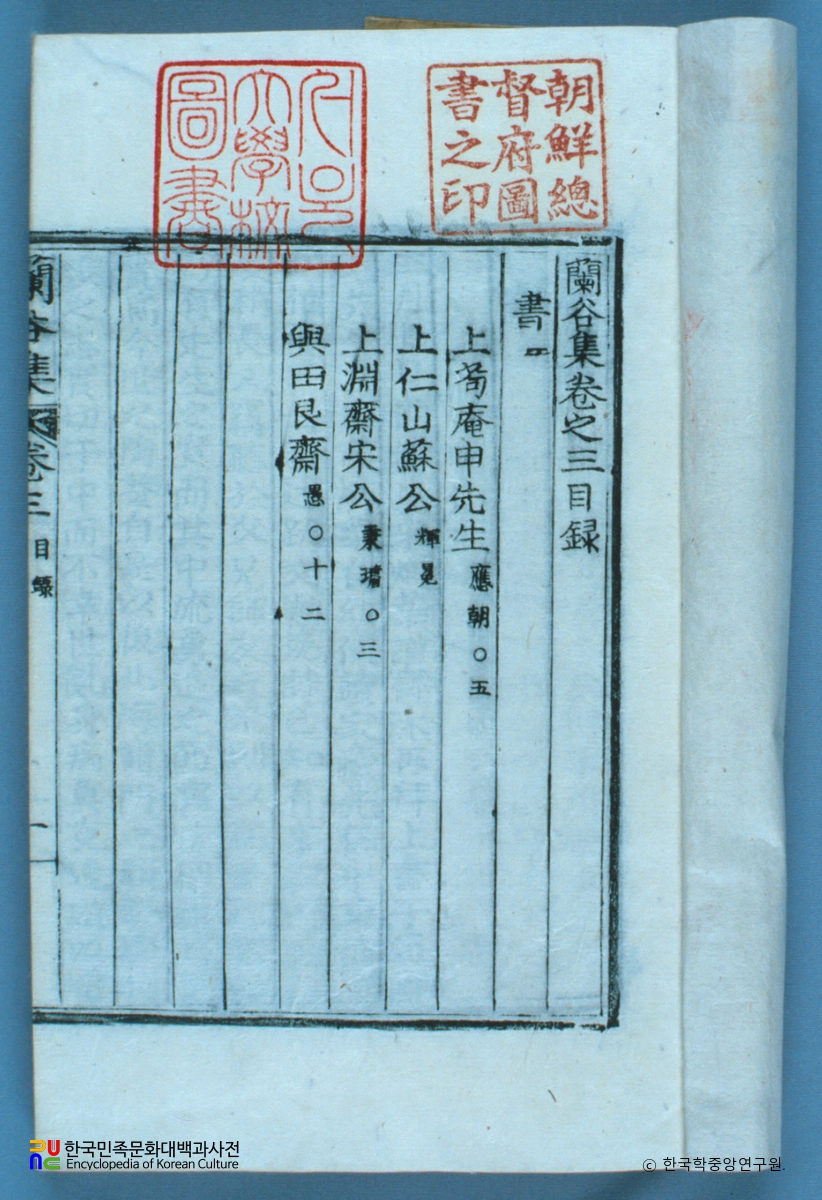 朝鮮總
督府圖
書之印
서울
大學校
圖書
蘭谷集卷之三目録
書
上苟庵申先生 應朝○五
上仁山蘇公 輝冕
上淵齋宋公 秉璿○三
與田艮齋 愚○十二
蘭谷集 卷三 目錄 一
한국민족문화대백과사전
Encyclopedia of Korean Culture
© 한국학중앙연구원.